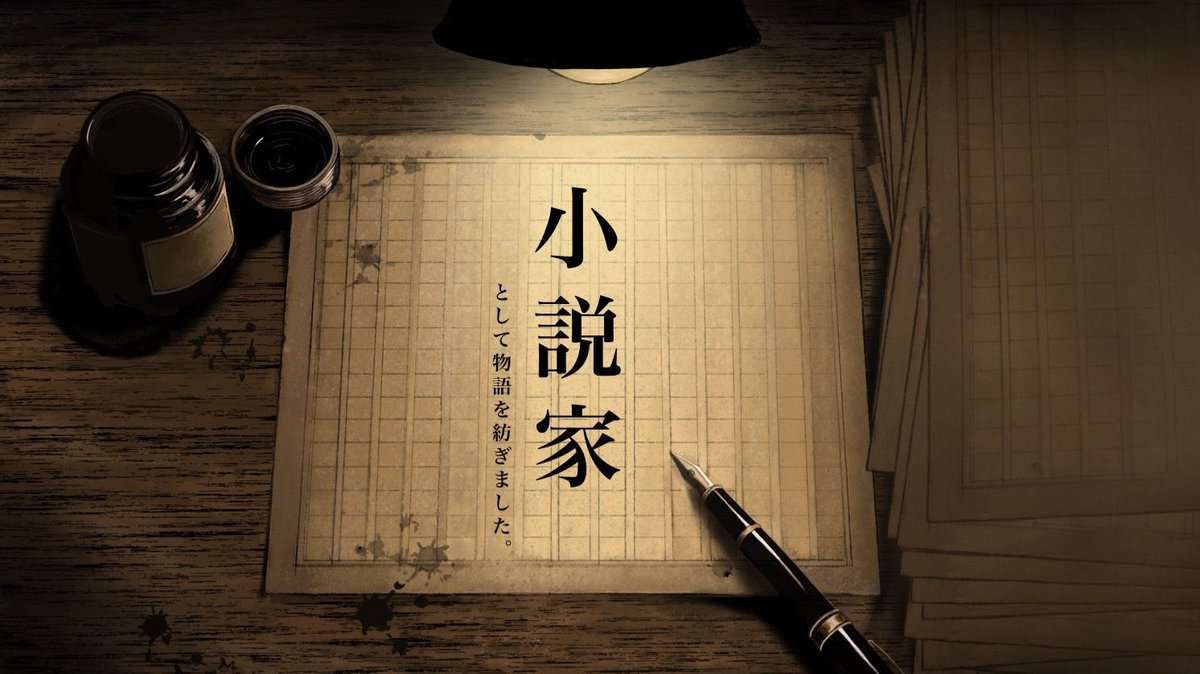 小説家
として物語を紡ぎました。